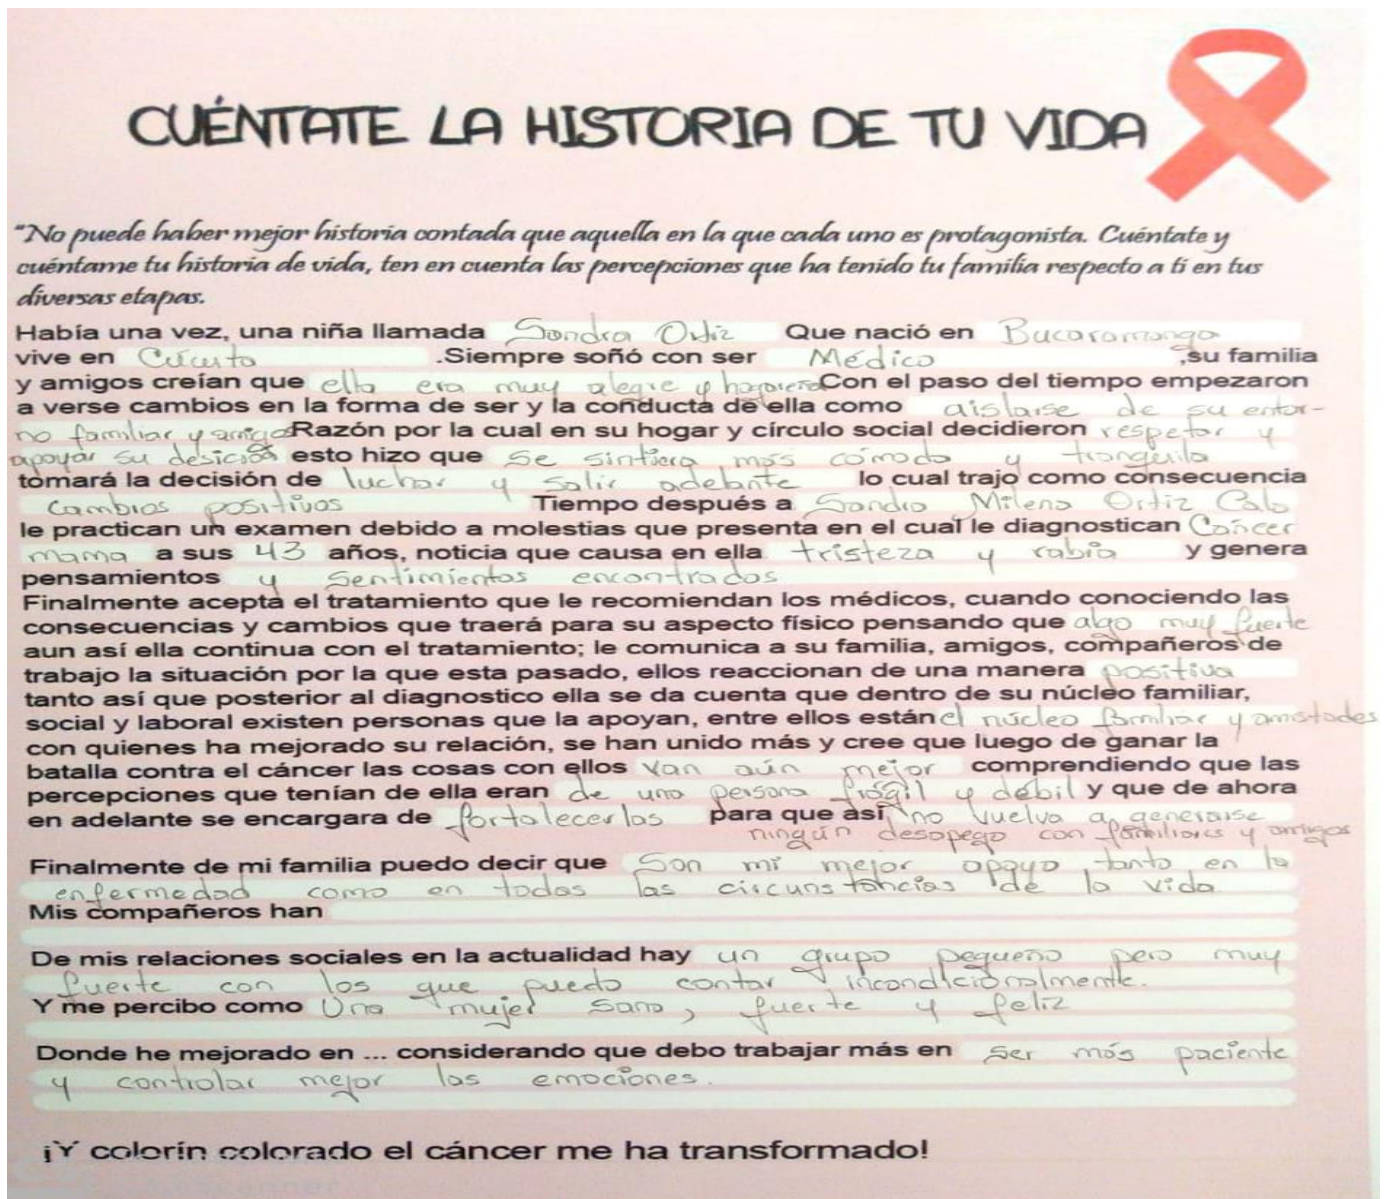 CUÉNTATE LA HISTORIA DE TU VIDA
"No puede haber mejor historia contada que aquella en la que cada uno es protagonista. Cuéntate y
cuéntame tu historia de vida, ten en cuenta las percepciones que ha tenido tu familia respecto a ti en tus
diversas etapas.
Había una vez, una niña llamada Sandra Ortiz Que nació en Bucaramanga
vive en Cúcuta .Siempre soñó con ser Médico ,su familia
y amigos creían que ella era muy alegre y hogareña Con el paso del tiempo empezaron
a verse cambios en la forma de ser y la conducta de ella como aislarse de su entor-
no familiar y amigos Razón por la cual en su hogar y círculo social decidieron respetar y
apoyar su desición esto hizo que se sintiera más cómoda y tranquila
tomará la decisión de luchar y salir adelante lo cual trajo como consecuencia
cambios positivos Tiempo después a Sandra Milena Ortiz
le practican un examen debido a molestias que presenta en el cual le diagnostican Cáncer
mama a sus 43 años, noticia que causa en ella tristeza y rabia y genera
pensamientos y sentimientos encontrados
Finalmente acepta el tratamiento que le recomiendan los médicos, cuando conociendo las
consecuencias y cambios que traerá para su aspecto físico pensando que algo muy fuerte
aun así ella continua con el tratamiento; le comunica a su familia, amigos, compañeros de
trabajo la situación por la que esta pasado, ellos reaccionan de una manera positiva
tanto así que posterior al diagnostico ella se da cuenta que dentro de su núcleo familiar,
social y laboral existen personas que la apoyan, entre ellos están el núcleo familiar y amistades
con quienes ha mejorado su relación, se han unido más y cree que luego de ganar la
batalla contra el cáncer las cosas con ellos van aún mejor comprendiendo que las
percepciones que tenían de ella eran de una persona frágil y débil y que de ahora
en adelante se encargara de fortalecerlas para que así no vuelva a generarse
ningún desapego con familiares y amigos
Finalmente de mi familia puedo decir que Son mi mejor apoyo tanto en la
enfermedad como en todas las circunstancias de la vida
Mis compañeros han
De mis relaciones sociales en la actualidad hay un grupo pequeño pero muy
fuerte con los que puedo contar incondicionalmente.
Y me percibo como Una mujer sana, fuerte y feliz
Donde he mejorado en ... considerando que debo trabajar más en ser más paciente
y controlar mejor las emociones.
¡Y colorín colorado el cáncer me ha transformado!